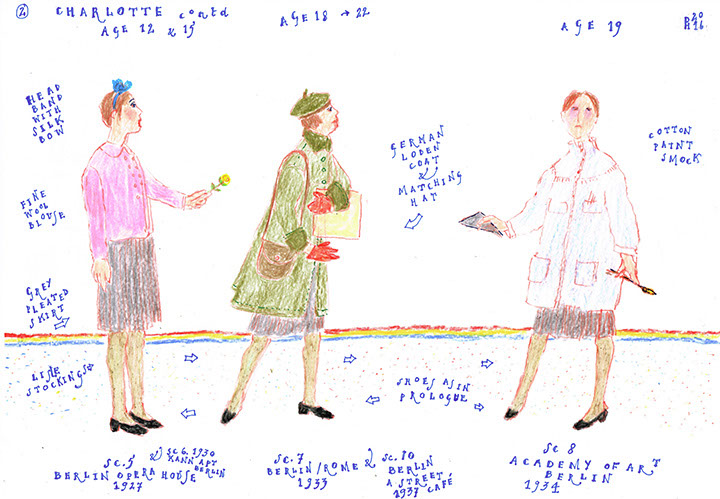 2
CHARLOTTE contd
AGE 12 & 15
AGE 18 → 22
AGE 19
20
16
HEAD
BAND
WITH
SILK
BOW
FINE
WOOL
BLOUSE
GREY
PLEATED
SKIRT
LISLE
STOCKINGS
GERMAN
LODEN
COAT
&
MATCHING
HAT
COTTON
PAINT
SMOCK
SHOES AS IN
PROLOGUE
SC. 5
BERLIN OPERA HOUSE
1927
& SC 6. 1930
KANN APT
BERLIN
SC. 7
BERLIN/ROME &
1933
SC. 10
BERLIN
A STREET/
1937 CAFÉ
SC 8
ACADEMY OF ART
BERLIN
1934